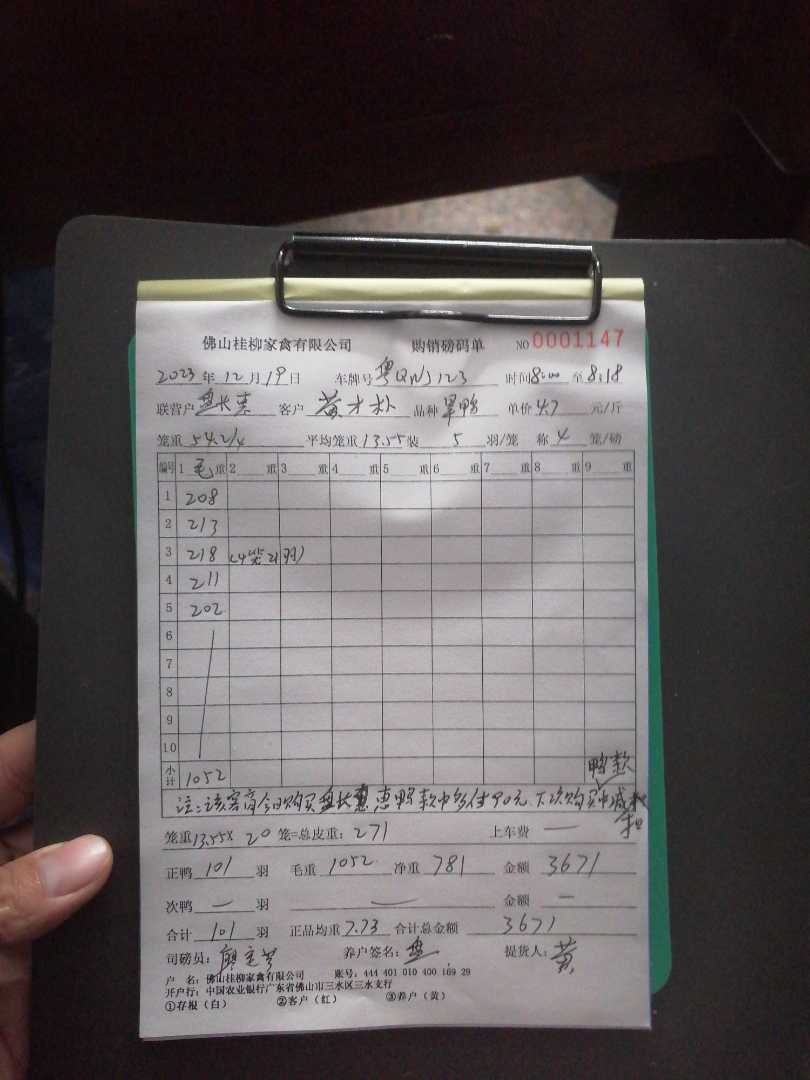 佛山桂柳家禽有限公司 购销磅码单 NO 0001147
2023年12月19日 车牌号 粤QNJ123 时间8:00至8:18
联营户 盘长惠 客户 黄才朴 品种 旱鸭 单价 4.7 元/斤
笼重 54.2/4 平均笼重 13.55 装 5 羽/笼 称 4 笼/磅
编号 1 毛重 2 重 3 重 4 重 5 重 6 重 7 重 8 重 9 重
1 208
2 213
3 218 (4笼21羽)
4 211
5 202
6
7
8
9
10
小计 1052
鸭款
注:该客商今日购买盘长惠鸭款中多付90元 下次购买中减
笼重13.55× 20 笼=总皮重: 271 上车费 —
正鸭 101 羽 毛重 1052 净重 781 金额 3671
次鸭 — 羽 — 金额 —
合计 101 羽 正品均重 7.73 合计总金额 3671
司磅员: 养户签名: 盘 提货人: 黄
户 名: 佛山桂柳家禽有限公司 账号: 444 401 010 400 169 29
开户行: 中国农业银行广东省佛山市三水区三水支行
①存根(白) ②客户(红) ③养户(黄)